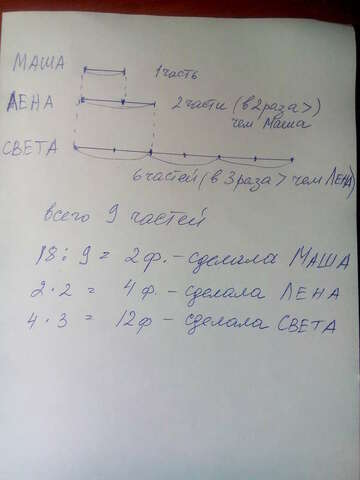 МАША 1 часть
ЛЕНА 2 части (в 2 раза >
чем Маша)
СВЕТА
6 частей (в 3 раза > чем ЛЕНА)
всего 9 частей
18 : 9 = 2 ф. - сделала МАША
2 · 2 = 4 ф. - сделала ЛЕНА
4 · 3 = 12 ф - сделала СВЕТА